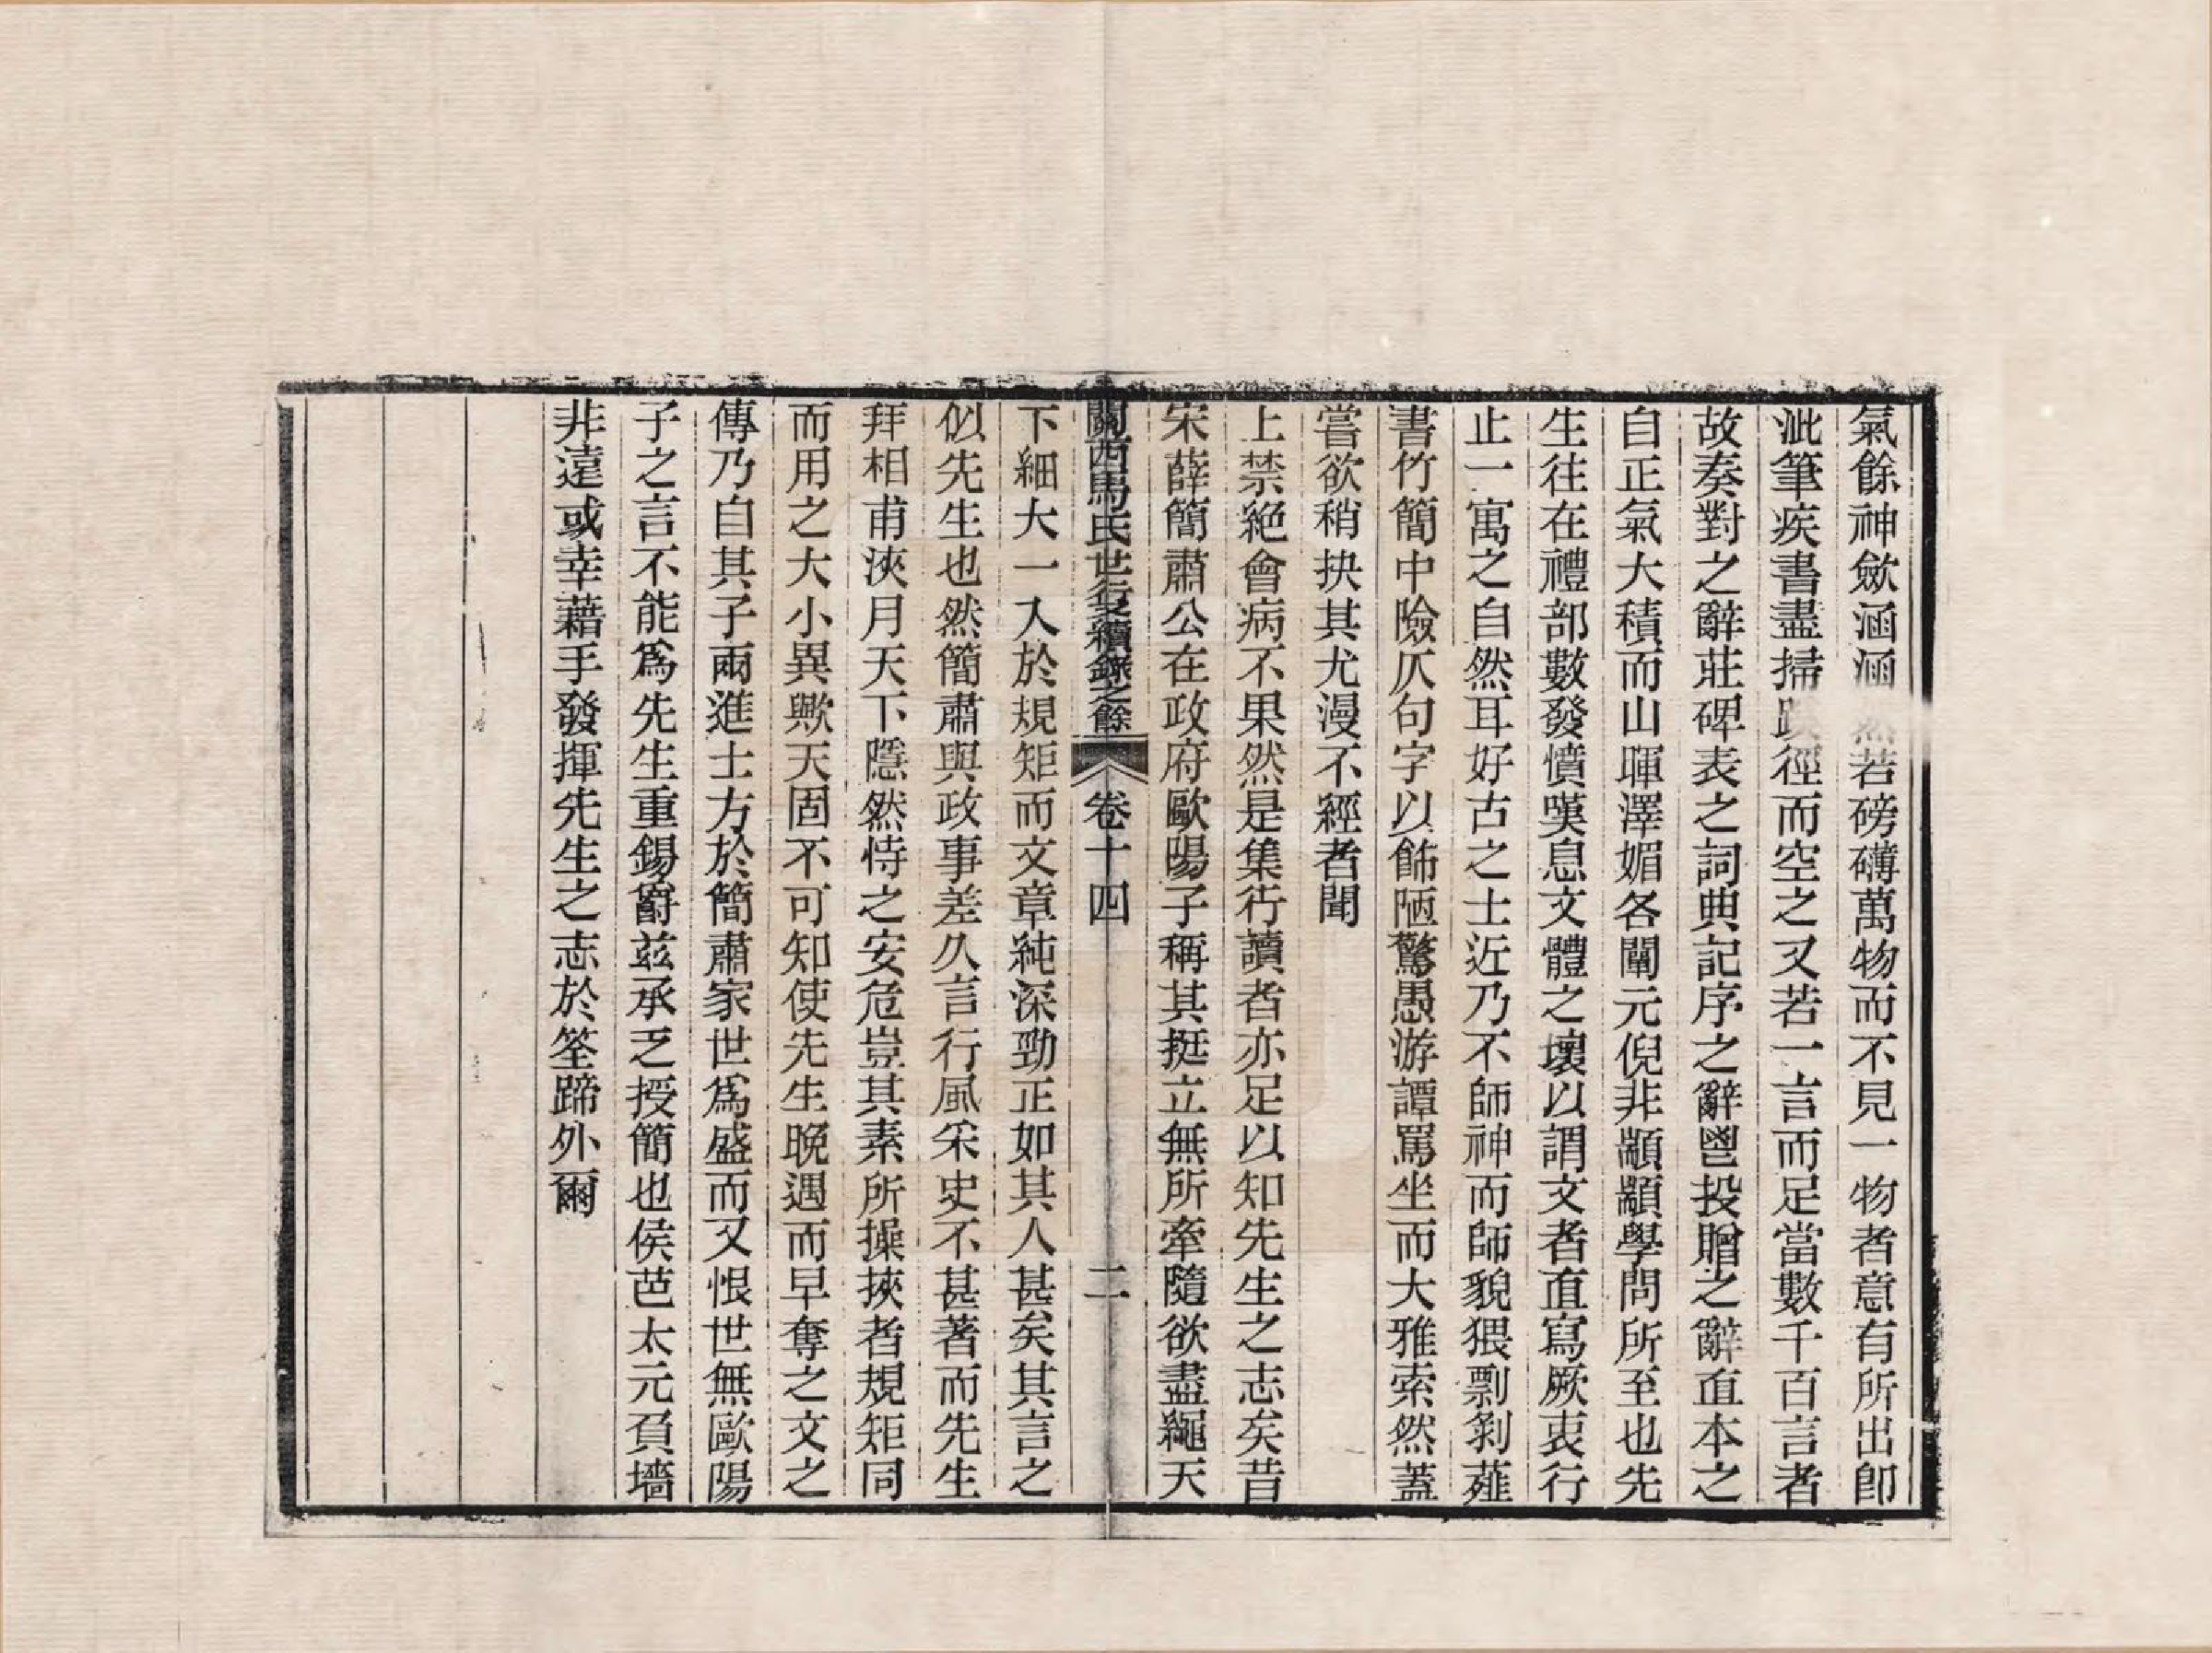 氣餘神歛涵涵然若磅礴萬物而不見一物者意有所出卽
泚筆疾書盡掃蹊徑而空之又若一言而足當數千百言者
故奏對之辭莊碑表之詞典記序之辭鬯投贈之辭直本之
自正氣大積而山暉澤媚各闡元倪非顓顓學問所至也先
生往在禮部數發憤嘆息文體之壞以謂文者直寫厥衷行
止一寓之自然耳好古之士近乃不師神而師貌猥剽剝薶
書竹簡中險仄句字以飾陋驚愚游譚罵坐而大雅索然蓋
嘗欲稍抉其尤漫不經者聞
上禁絕會病不果然是集行讀者亦足以知先生之志矣昔
宋薛簡肅公在政府歐陽子稱其挺立無所牽隨欲盡繩天
關西馬氏世行錄續錄之餘 卷十四 二
下細大一入於規矩而文章純深勁正如其人甚矣其言之
似先生也然簡肅與政事差久言行風采史不甚著而先生
拜相甫浹月天下隱然恃之安危豈其素所操挾者規矩同
而用之大小異歟天固不可知使先生晚遇而早奪之文之
傳乃自其子兩進士方於簡肅家世爲盛而又恨世無歐陽
子之言不能爲先生重錫爵茲承乏授簡也侯芭太元負墻
非遠或幸藉手發揮先生之志於筌蹄外爾